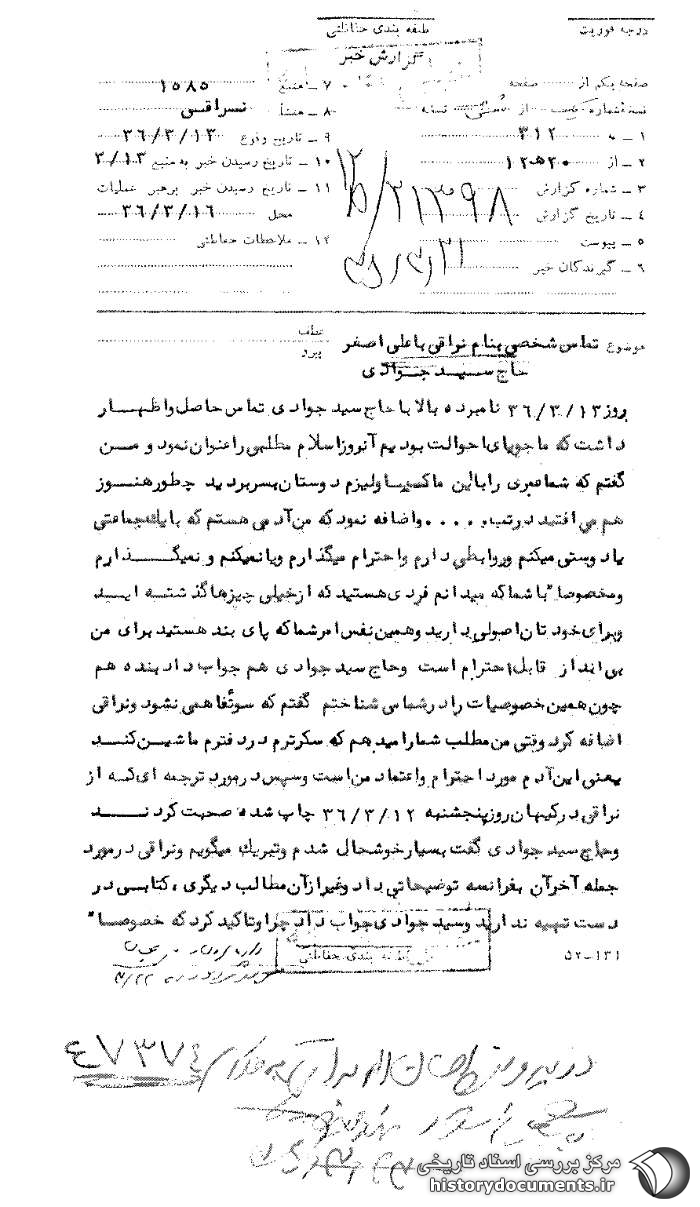 درجه فوریت
طبقه بندی حفاظتی
گزارش خبر
صفحه یکم از صفحه
نسخه شماره از نسخه
۱ ـ به ۳۱۲
۲ ـ از ۲۰ ه‍ ۱۲
۳ ـ شماره گزارش
۴ ـ تاریخ گزارش
۵ ـ پیوست
۶ ـ گیرندگان خبر
۷ ـ منبع ۱۵۸۵
۸ ـ منشأ نسراقسی
۹ ـ تاریخ وقوع ۳۶/۳/۱۳
۱۰ ـ تاریخ رسیدن خبر به منبع ۳/۱۳
۱۱ ـ تاریخ رسیدن خبر برهبر عملیات
محل ۳۶/۳/۱۶
۱۲ ـ ملاحظات حفاظتی
موضوع تماس شخصی بنام نراقی با علی اصغر
حاج سید جوادی
عطف
پیرد
روز ۳۶/۳/۱۳ نامبرده بالا با حاج سید جوادی تماس حاصل و اظهار
داشت که ما جویای احوالت بودیم آنروز اسلام مطلبی را عنوان نمود و من
گفتم که شما عمری را با این ماکسیسا ولیزم دوستان بسر بردید چطور هنوز
هم می افتید در تب، . . . . و اضافه نمود که من آدمی هستم که با یک جماعتی
یا دوستی میکنم و روابطی دارم و احترام میگذارم و یا نمیکنم و نمیگذارم
و مخصوصا" با شما که میدانم فردی هستید که از خیلی چیزها گذشته اید
و برای خودتان اصولی دارید و همین نفس امر شما که پای بند هستید برای من
بی انداز قابل احترام است و حاج سید جوادی هم جواب داد بنده هم
چون همین خصوصیات را در شما می شناختم گفتم که سوئفاهمی نشود و نراقی
اضافه کرد وقتی من مطلب شما را میدهم که سکرترم در دفترم ماشین کند
یعنی این آدم مورد احترام و اعتماد من است و سپس در مورد ترجمه ای که از
نراقی در کیهان روز پنجشنبه ۳۶/۳/۱۲ چاپ شده صحبت کردند
و حاج سید جوادی گفت بسیار خوشحال شدم و تبریک میگویم و نراقی در مورد
جمله آخر آن بفرانسه توضیحاتی داد و غیر از آن مطالب دیگری، کتابی در
دست تهیه ندارید و سید جوادی جواب داد چرا و تاکید کرد که خصوصا"
طبقه بندی حفاظتی
۵۲-۱۳۱
مرکز بررسی اسناد تاریخی
historydocuments.ir